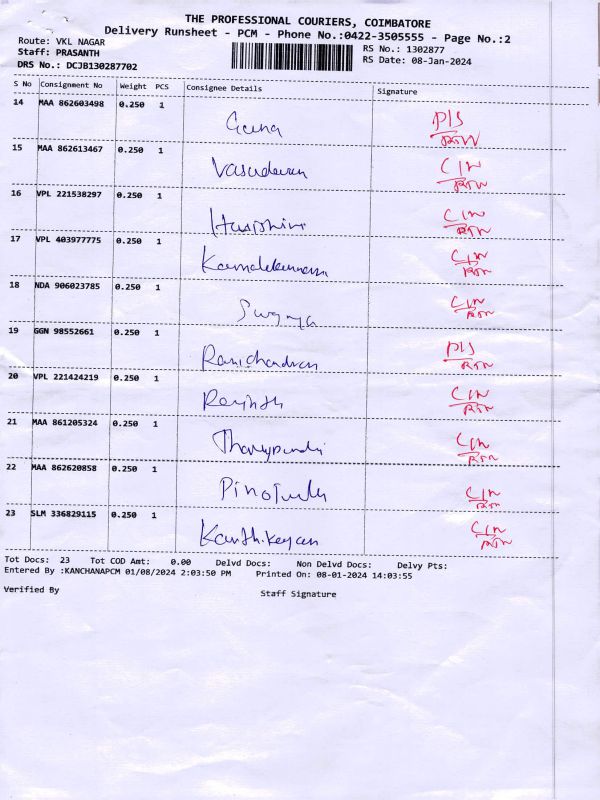 THE PROFESSIONAL COURIERS, COIMBATORE
Delivery Runsheet - PCM - Phone No.:0422-3505555 - Page No.:2
Route: VKL NAGAR RS No.: 1302877
Staff: PRASANTH RS Date: 08-Jan-2024
DRS No.: DCJB130287702
S No Consignment No Weight PCS Consignee Details Signature
14 MAA 862603498 0.250 1 P/S
RTN
15 MAA 862613467 0.250 1 Vasudevan C/N
RTN
16 VPL 221538297 0.250 1 Harishini C/N
RTN
17 VPL 403977775 0.250 1 C/N
RTN
18 NDA 906023785 0.250 1 C/N
RTN
19 GGN 98552661 0.250 1 Ramchandran P/S
RTN
20 VPL 221424219 0.250 1 C/N
RTN
21 MAA 861205324 0.250 1 C/N
RTN
22 MAA 862620858 0.250 1 C/N
RTN
23 SLM 336829115 0.250 1 Karthikeyan C/N
RTN
Tot Docs: 23 Tot COD Amt: 0.00 Delvd Docs: Non Delvd Docs: Delvy Pts:
Entered By :KANCHANAPCM 01/08/2024 2:03:50 PM Printed On: 08-01-2024 14:03:55
Verified By Staff Signature